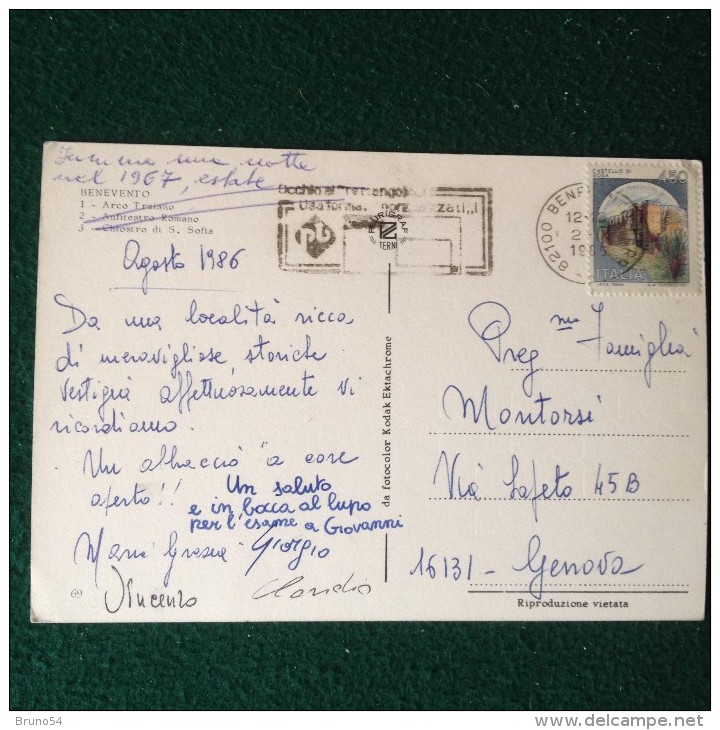 una notte
nel 1967, estate
BENEVENTO
1 - Arco Traiano
2 - Anfiteatro Romano
3 - Chiostro di S. Sofia
Agosto 1986
Da una località ricca
di meravigliose storiche
vestigia affettuosamente vi
ricordiamo.
Un abbraccio "a core
aperto!!
Un saluto
e in bocca al lupo
per l'esame a Giovanni
Maria Grazia Giorgio
Vincenzo Claudio
69
da fotocolor Kodak Ektachrome
Occhio al rettangolo
Usa formati
TERNI
82100 BENE
CASTELLO DI
450
ITALIA
Preg ma Famiglia
Montorsi
Via Lafeto 45B
16131 - Genova
Riproduzione vietata
Bruno54
delcampe.net